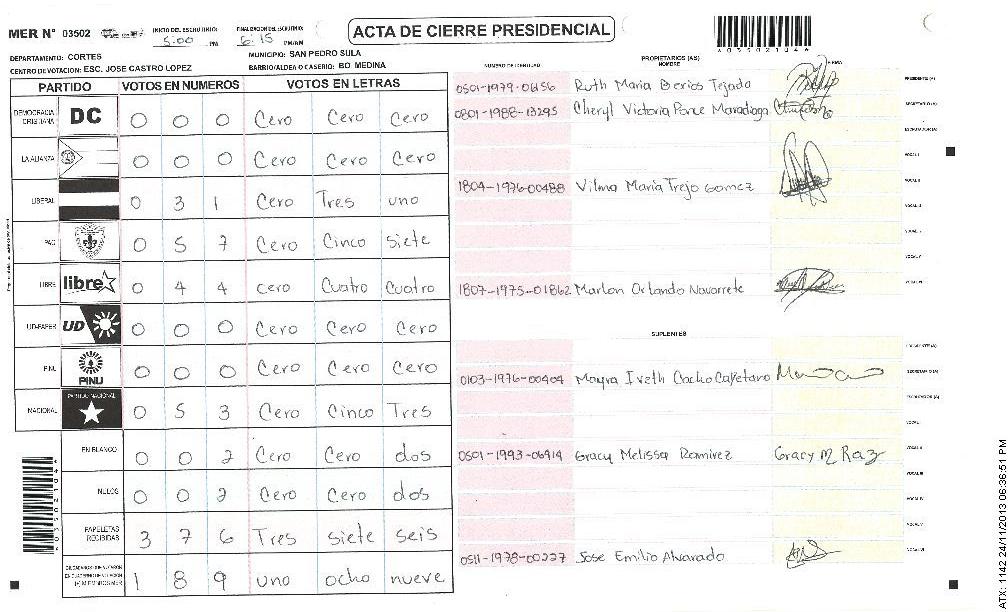 ACTA DE CIERRE PRESIDENCIAL
MER N° 03502
INICIO DEL ESCRUTINIO: 5:00 PM
FINALIZACION DEL ESCRUTINIO: 6:15 PM/AM
DEPARTAMENTO: CORTES
MUNICIPIO: SAN PEDRO SULA
CENTRO DE VOTACION: ESC. JOSE CASTRO LOPEZ
BARRIO/ALDEA O CASERIO: BO MEDINA
PARTIDO VOTOS EN NUMEROS VOTOS EN LETRAS
DEMOCRACIA CRISTIANA DC 0 0 0 Cero Cero Cero
LA ALIANZA 0 0 0 Cero Cero Cero
LIBERAL 0 3 1 Cero Tres uno
PAC 0 5 7 Cero Cinco siete
LIBRE libre 0 4 4 cero Cuatro Cuatro
UD-FAPER UD 0 0 0 Cero Cero Cero
PINU PINU 0 0 0 Cero Cero Cero
NACIONAL PARTIDO NACIONAL 0 5 3 Cero Cinco Tres
EN BLANCO 0 0 2 Cero Cero dos
NULOS 0 0 2 Cero Cero dos
PAPELETAS RECIBIDAS 3 7 6 Tres siete seis
1 8 9 uno ocho nueve
PROPIETARIOS (AS)
NUMERO DE IDENTIDAD NOMBRE FIRMA
Ruth Maria Berios Tejada PRESIDENTE (A)
0801-1988-13295 Cheryl Victoria Ponce Maradiaga SECRETARIO (A)
ESCRUTADOR (A)
VOCAL I
1804-1976-00488 Vilma Maria Trejo Gomez VOCAL II
VOCAL III
VOCAL IV
VOCAL V
1807-1975-01862 Marlon Orlando Navarrete VOCAL VI
SUPLENTES
PRESIDENTE (A)
0103-1976-00404 Mayra Iveth Cacho Cayetano SECRETARIO (A)
ESCRUTADOR (A)
VOCAL I
0501-1993-06914 Gracy Melissa Ramirez VOCAL II
VOCAL III
VOCAL IV
VOCAL V
0511-1978-00227 Jose Emilio Alvarado VOCAL VI
ATX: 1142 24/11/2013 06:36:51 PM